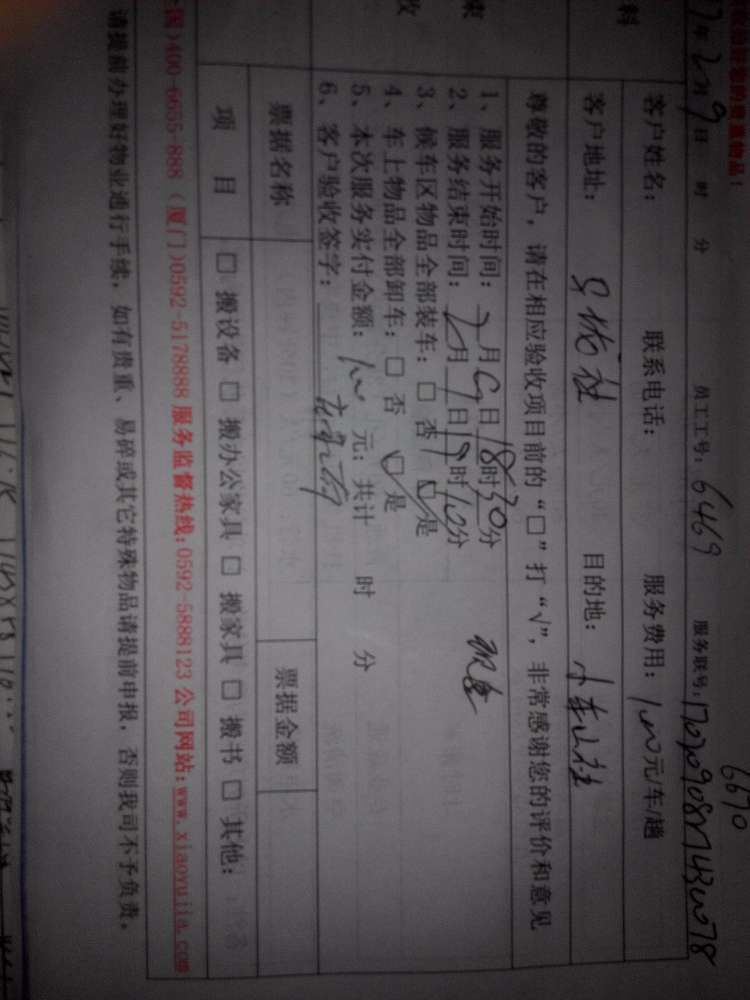 的贵重物品!
6670
7年2月9日 时 分 员工工号: 6469 服务联号:
客户姓名: 联系电话: 服务费用: 100元/车/趟
料 客户地址: 目的地: 小东山社
尊敬的客户，请在相应验收项目前的“□”打“√”，非常感谢您的评价和意见
1、服务开始时间: 2月9日18时30分
2、服务结束时间: 2月9日19时10分
3、候车区物品全部装车: □ 否 ☑ 是
4、车上物品全部卸车: □ 否 ☑ 是
5、本次服务实付金额: 100 元; 共计 时 分
6、客户验收签字:
票据名称 票据金额
项 目 □ 搬设备 □ 搬办公家具 □ 搬家具 □ 搬书 □ 其他:
国)400-6655-888 (厦门)0592-5178888 服务监督热线:0592-5888123 公司网站:www.xiaoyujia.com
请提前办理好物业通行手续，如有贵重、易碎或其它特殊物品请提前申报，否则我司不予负责。